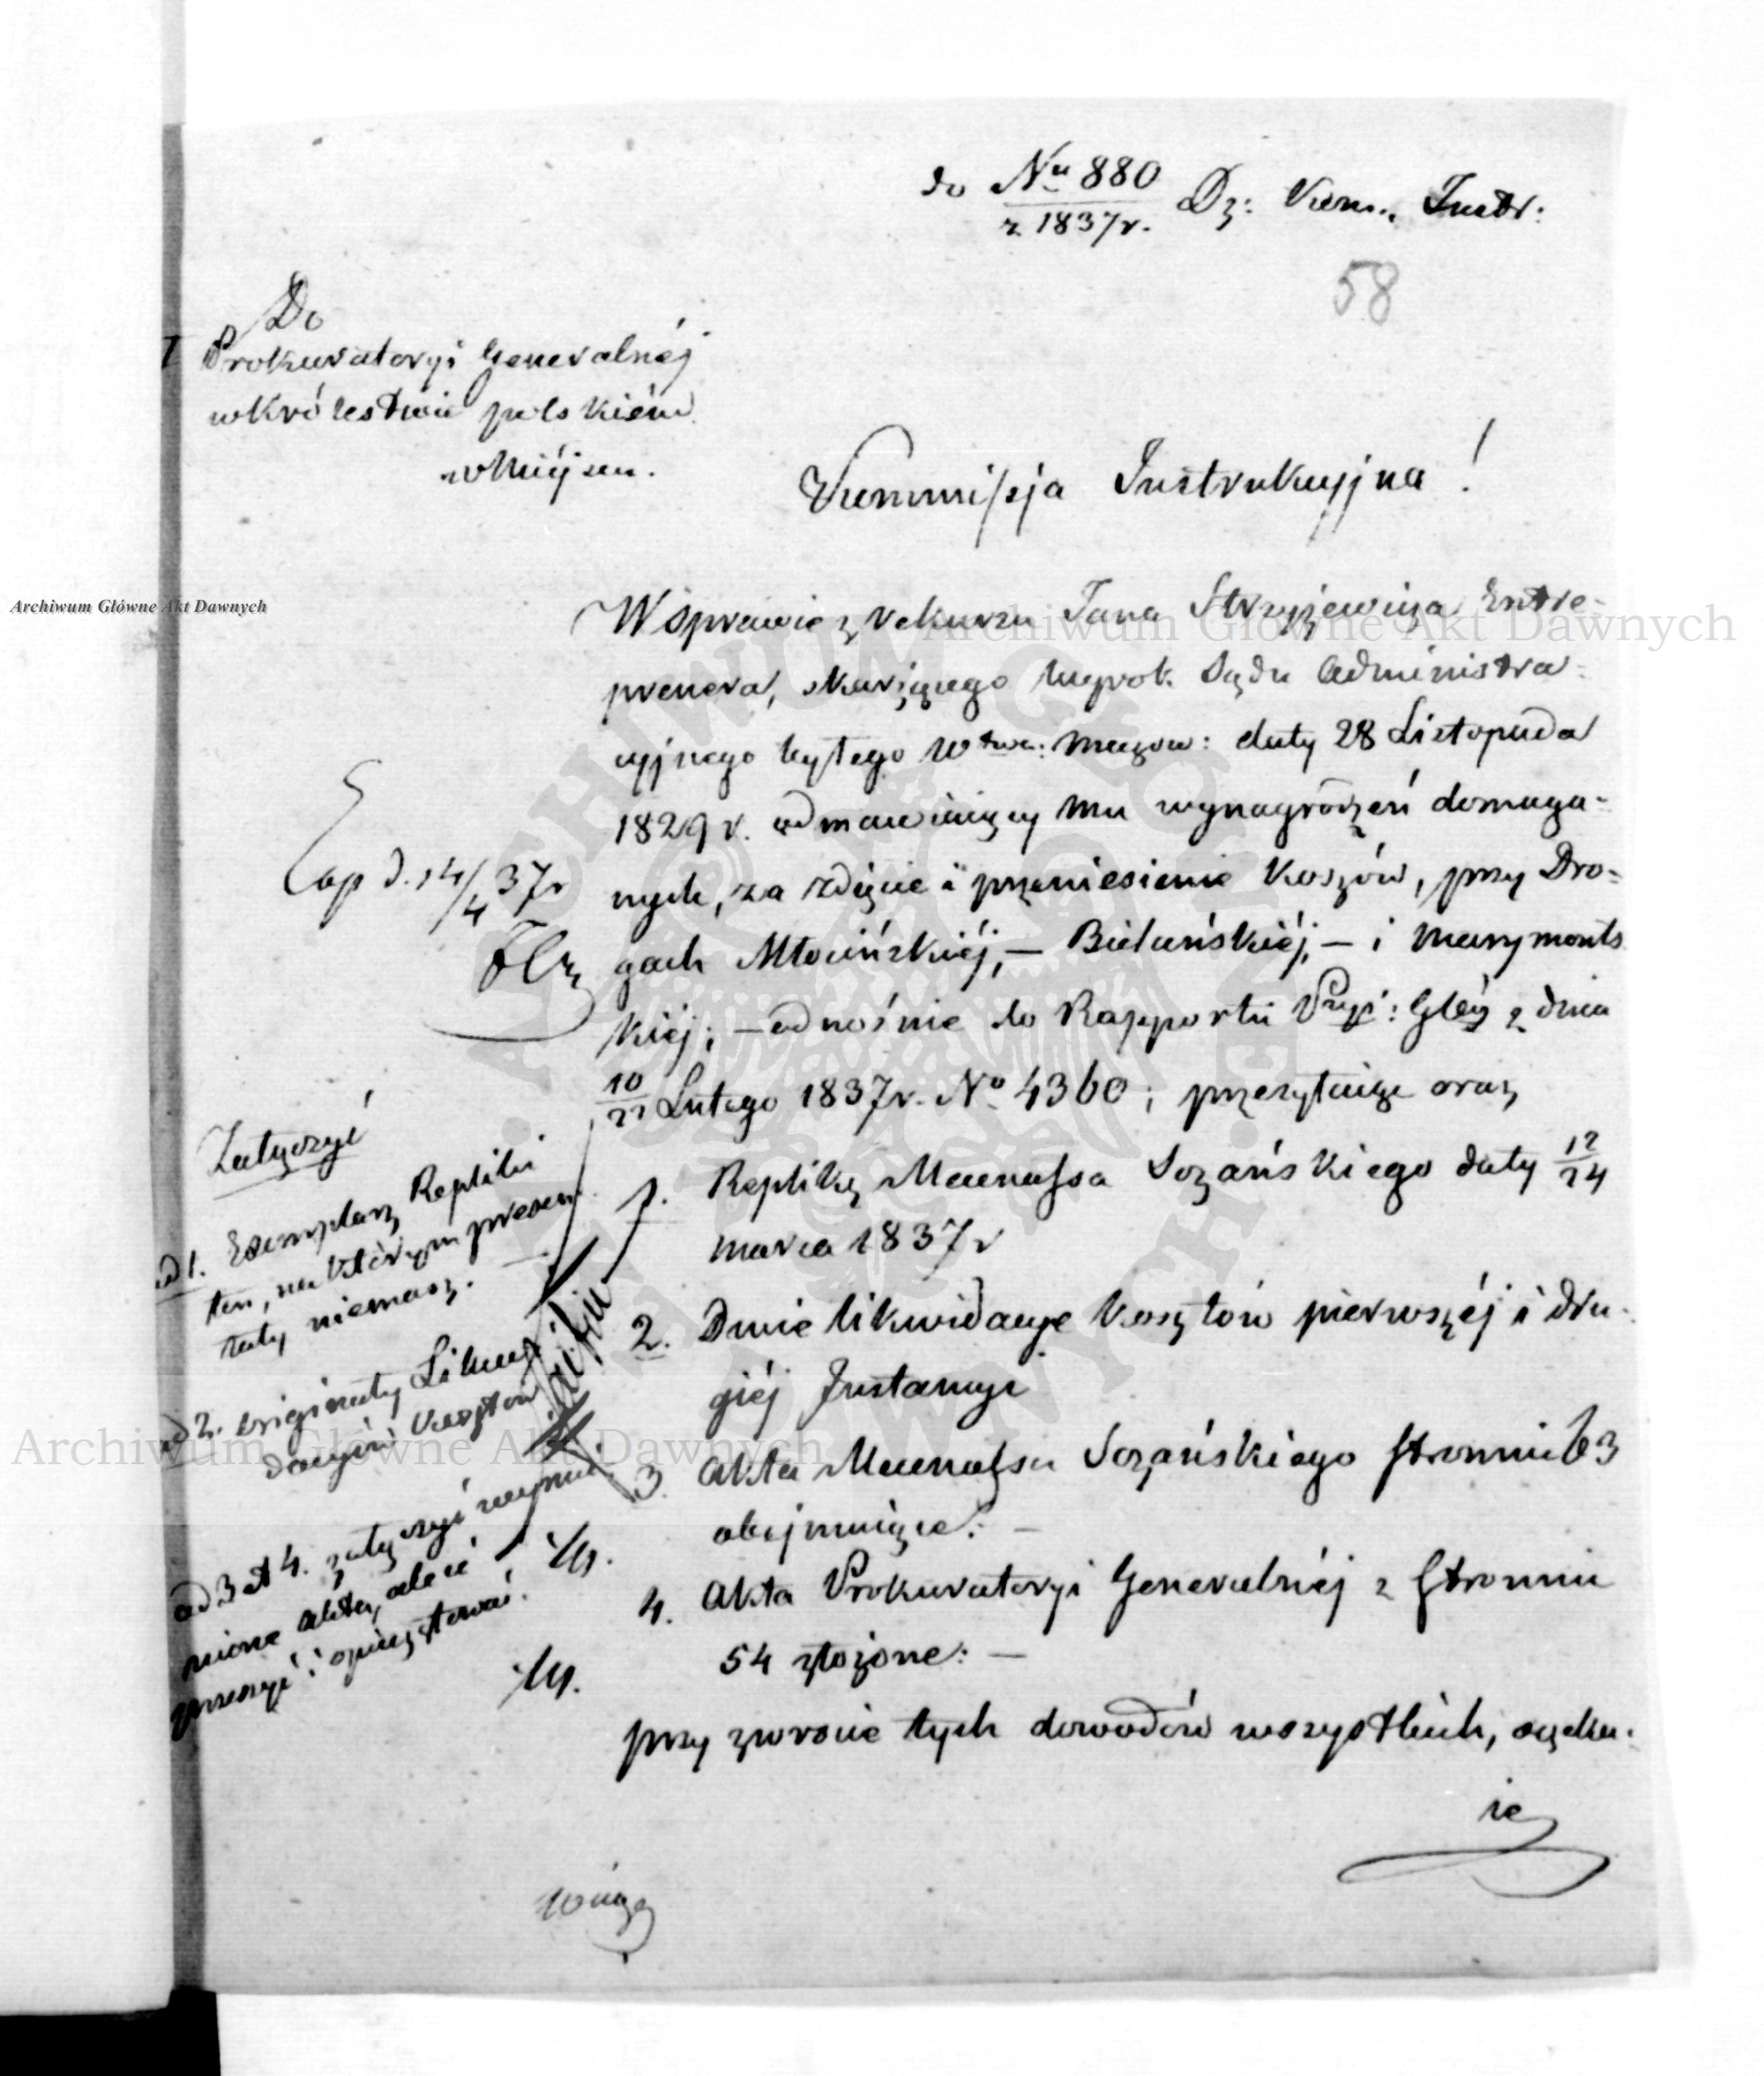 do Nu 880 Dz: Kom: Instr:
z 1837 r.
58
Do
Prokuratoryi Generalnéj
w Królestwie polskiém
w Miéjscu.
Kommissja Instrukcyjna!
W sprawie z rekursu Jana Strzyżewicza Entre-
prenera, skarżącego wyrok Sądu Administra-
cyjnego byłego Wtwa: Mazow: daty 28 Listopada
1829 r. odmawiaiący mu wynagrodzeń domaga-
nych, za zdięcie i przeniesienie koszów, przy Dro-
gach Młocińskiéj, – Bielańskiéj, – i Marymonts
kiéj; – odnośnie do Rapportu Pryi: Glnéj z dnia
10/22 Lutego 1837 r. No 4360; przesyłaiąc oraz
1. Replikę Mecenassa Sozańskiego daty 12/24
marca 1837 r
2. Dwie likwidacye kosztów pierwszéj i dru-
giéj Instancyi
3. Akta Mecenassa Sozańskiego stronnic 63
obejmuiące: –
4. Akta Prokuratoryi Generalnéj z stronnic
54 złożone: –
przy zwrocie tych dowodów wszystkich, oczeku-
ie
Exp d. 14/4 37 r
Załączyć
ad 1. Exemplarz Repliki
ten, na którym presen
taty niemasz.
ad 2. originały Likwi
dacyów kosztów
ad 3 et 4. załączyć wymie
nione akta, ale ie
przeszyć i opieczętować.
Archiwum Główne Akt Dawnych
Archiwum Główne Akt Dawnych
Archiwum Główne Akt Dawnych